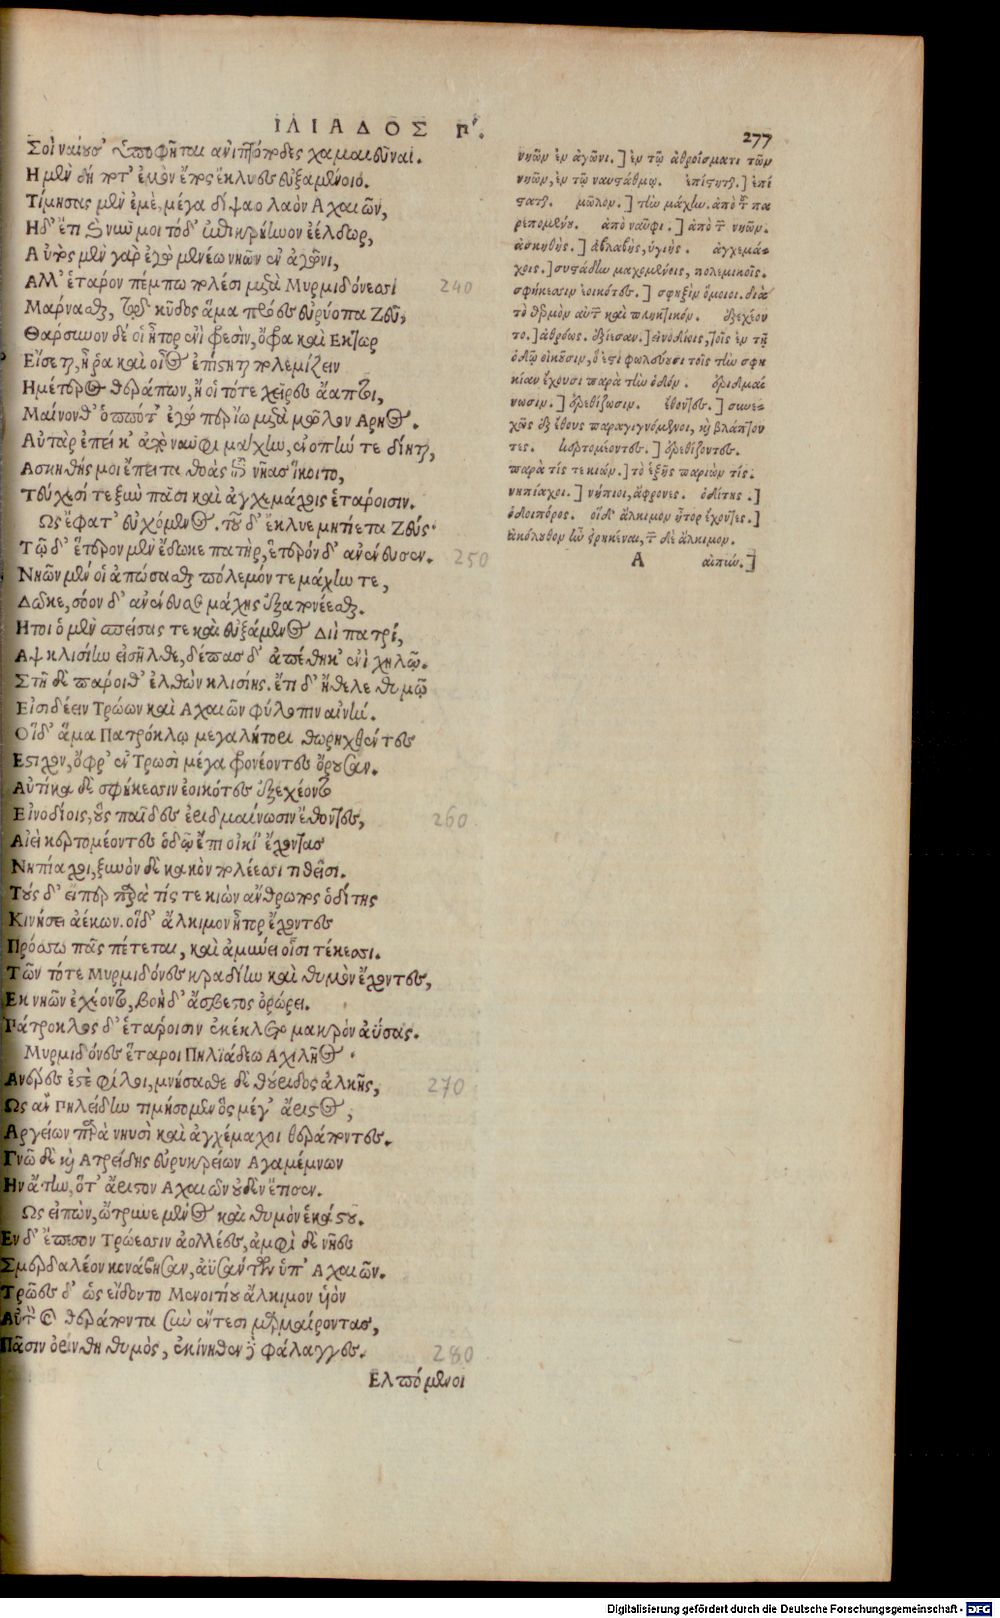 ΙΛΙΑΔΟΣ Π.
277
Σοὶ ναίουσ' ὑποφῆται ἀνιπτόποδες χαμαιεῦναι.
Η μὲν δή ποτ' ἐμὸν ἔπος ἔκλυες εὐξαμένοιο.
Τίμησας μὲν ἐμὲ, μέγα δ' ἴψαο λαὸν Αχαιῶν,
Ηδ' ἔτι καὶ νῦν μοι τόδ' ἐπικρήηνον ἐέλδωρ,
Αὐτὸς μὲν γὰρ ἐγὼ μενέω νηῶν ἐν ἀγῶνι,
Αλλ' ἕταρον πέμπω πολέσι μετὰ Μυρμιδόνεσσι
240
Μάρνασθαι, τῷ δ' κῦδος ἅμα πρόες εὐρύοπα Ζεῦ,
Θάρσυνον δέ οἱ ἦτορ ἐνὶ φρεσὶν, ὄφρα καὶ Εκτωρ
Εἴσεται, ἤ ῥα καὶ οἶος ἐπίστηται πολεμίζειν
Ημέτερος θεράπων, ἤ οἱ τότε χεῖρες ἄαπτοι,
Μαίνονθ' ὁππότ' ἐγώ περ ἴω μετὰ μῶλον Αρηος.
Αὐτὰρ ἐπεί κ' ἀπὸ ναῦφι μάχην, ἐνοπήν τε δίηται,
Ασκηθής μοι ἔπειτα θοὰς ἐπὶ νῆας ἵκοιτο,
Τεύχεσί τε ξὺν πᾶσι καὶ ἀγχεμάχοις ἑτάροισιν.
Ως ἔφατ' εὐχόμενος. τοῦ δ' ἔκλυε μητίετα Ζεύς·
Τῷ δ' ἕτερον μὲν ἔδωκε πατὴρ, ἕτερόν δ' ἀνένευσεν.
250
Νηῶν μέν οἱ ἀπώσασθαι πόλεμόν τε μάχην τε,
Δῶκε, σόον δ' ἀνένευσε μάχης ἐξαπονέεσθαι.
Ητοι ὁ μὲν σπείσας τε καὶ εὐξάμενος Διὶ πατρί,
Αψ κλισίην εἰσῆλθε, δέπας δ' ἀπέθηκ' ἐνὶ χηλῷ.
Στῆ δὲ πάροιθ' ἐλθὼν κλισίης. ἔτι δ' ἤθελε θυμῷ
Εἰσιδέειν Τρώων καὶ Αχαιῶν φύλοπιν αἰνήν.
Οἳ δ' ἅμα Πατρόκλῳ μεγαλήτορι θωρηχθέντες
Εστιχον, ὄφρ' ἐν Τρωσὶ μέγα φρονέοντες ὄρουσαν.
Αὐτίκα δὲ σφήκεσσιν ἐοικότες ἐξεχέοντο
Εἰνοδίοις, οὓς παῖδες ἐριδμαίνωσιν ἔθοντες,
260
Αἰεὶ κερτομέοντες ὁδῷ ἔπι οἰκί' ἔχοντας
Νηπίαχοι, ξυνὸν δὲ κακὸν πολέεσσι τιθεῖσι.
Τοὺς δ' εἴπερ παρά τίς τε κιὼν ἄνθρωπος ὁδίτης
Κινήσει ἀέκων. οἳ δ' ἄλκιμον ἦτορ ἔχοντες
Πρόσσω πᾶς πέτεται, καὶ ἀμύνει οἷσι τέκεσσι.
Τῶν τότε Μυρμιδόνες κραδίην καὶ θυμὸν ἔχοντες,
Εκ νηῶν ἐχέοντο, βοὴ δ' ἄσβεστος ὀρώρει.
Πάτροκλος δ' ἑτάροισιν ἐκέκλετο μακρὸν ἀΰσας.
Μυρμιδόνες ἕταροι Πηληϊάδεω Αχιλῆος·
Ανέρες ἐστὲ φίλοι, μνήσασθε δὲ θούριδος ἀλκῆς,
270
Ως ἂν Πηλείδην τιμήσομεν ὃς μέγ' ἄριστος,
Αργείων παρὰ νηυσὶ καὶ ἀγχέμαχοι θεράποντες.
Γνῶ δὲ καὶ Ατρείδης εὐρυκρείων Αγαμέμνων
Ην ἄτην, ὅτ' ἄριστον Αχαιῶν οὐδὲν ἔτισεν.
Ως εἰπὼν, ὤτρυνε μένος καὶ θυμὸν ἑκάστου.
Εν δ' ἔπεσον Τρώεσσιν ἀολλέες, ἀμφὶ δὲ νῆες
Σμερδαλέον κονάβησαν, ἀϋσάντων ὑπ' Αχαιῶν.
Τρῶες δ' ὡς εἴδοντο Μενοιτίου ἄλκιμον υἱὸν
Αὐτὸν καὶ θεράποντα σὺν ἔντεσι μαρμαίροντας,
Πᾶσιν ὀρίνθη θυμὸς, ἐκίνηθεν δὲ φάλαγγες.
280
Ελπόμενοι
νηῶν ἐν ἀγῶνι.] ἐν τῷ ἀθροίσματι τῶν
νηῶν, ἐν τῷ ναυστάθμῳ. ἐπίστηται.] ἐπί
σταται. μῶλον.] τὴν μάχην. ἀπὸ τοῦ πα
ρεπομένου. ἀπὸ ναῦφι.] ἀπὸ τῶν νηῶν.
ἀσκηθής.] ἀβλαβὴς, ὑγιής. ἀγχεμά-
χοις.] συστάδην μαχομένοις, πολεμικοῖς.
σφήκεσσιν ἐοικότες.] σφηξὶν ὅμοιοι. διὰ
τὸ θερμὸν αὐτῶν καὶ πληκτικόν. ἐξεχέον
το.] ἀθρόως. ἐξίεσαν.] εἰνοδίοις, τοῖς ἐν τῇ
ὁδῷ οἰκοῦσιν, ὅ ἐστι φωλεύουσι τοῖς τὴν σφη
κίαν ἔχουσι παρὰ τὴν ὁδόν. ἐριδμαί
νωσιν.] ἐρεθίζωσιν. ἔθοντες.] συνε-
χῶς ἐξ ἔθους παραγιγνόμενοι, καὶ βλάπτον
τες. κερτομέοντες.] ἐρεθίζοντες.
παρὰ τίς τε κιών.] τὸ ἑξῆς παριὼν τίς.
νηπίαχοι.] νήπιοι, ἄφρονες. ὁδίτης.]
ὁδοιπόρος. οἳ δ' ἄλκιμον ἦτορ ἔχοντες.]
ἀκόλουθον ὢν εἰρηκέναι, τὸ δὲ ἄλκιμον.
Α αἰπών.]
Digitalisierung gefördert durch die Deutsche Forschungsgemeinschaft - DFG